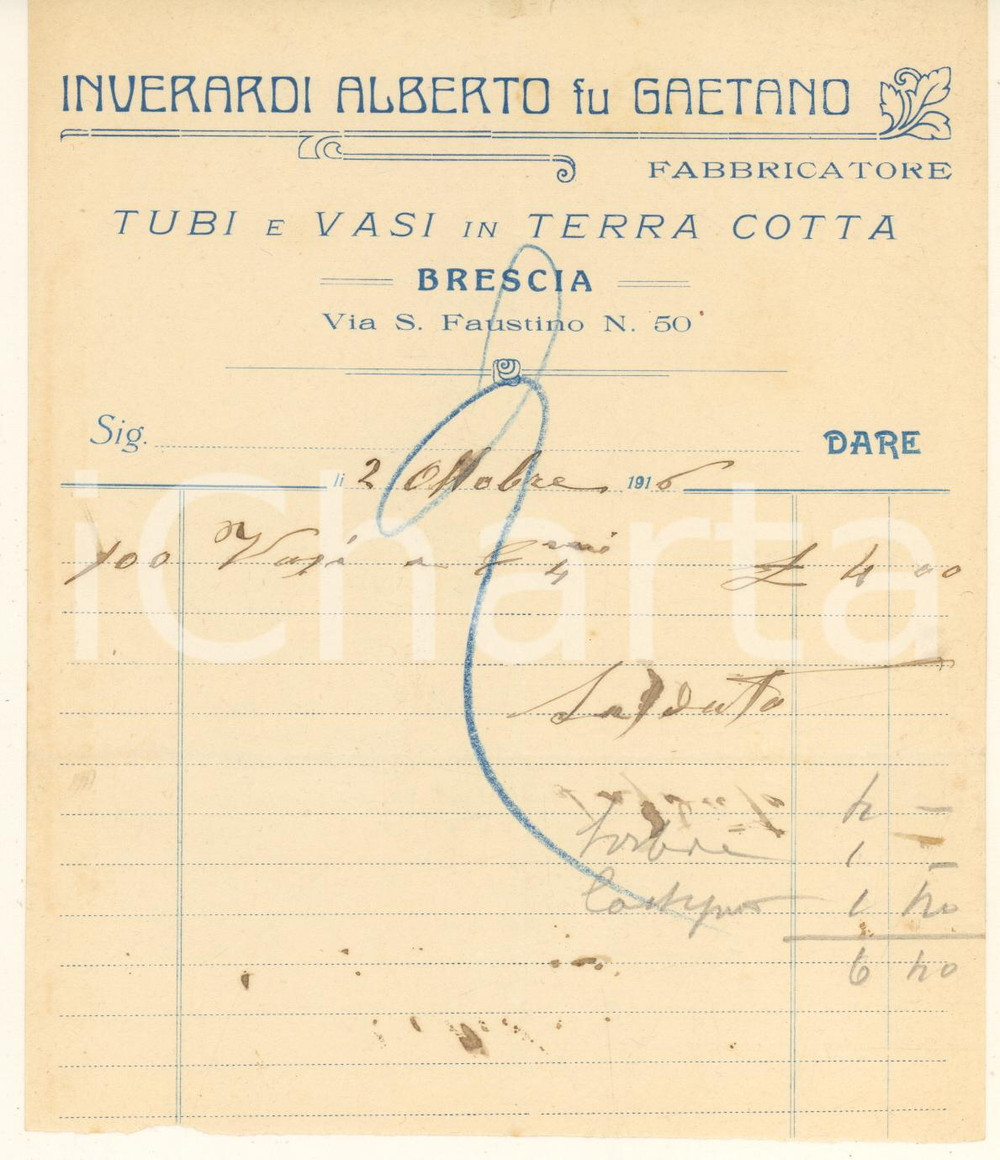 INVERARDI ALBERTO fu GAETANO
FABBRICATORE
TUBI E VASI IN TERRA COTTA
BRESCIA
Via S. Faustino N. 50
Sig.
DARE
li 2 Ottobre 1916
100 Vasi a C mi 4 £ 4 00
Saldato
4 -
1 -
1 50
6 50
iCharta